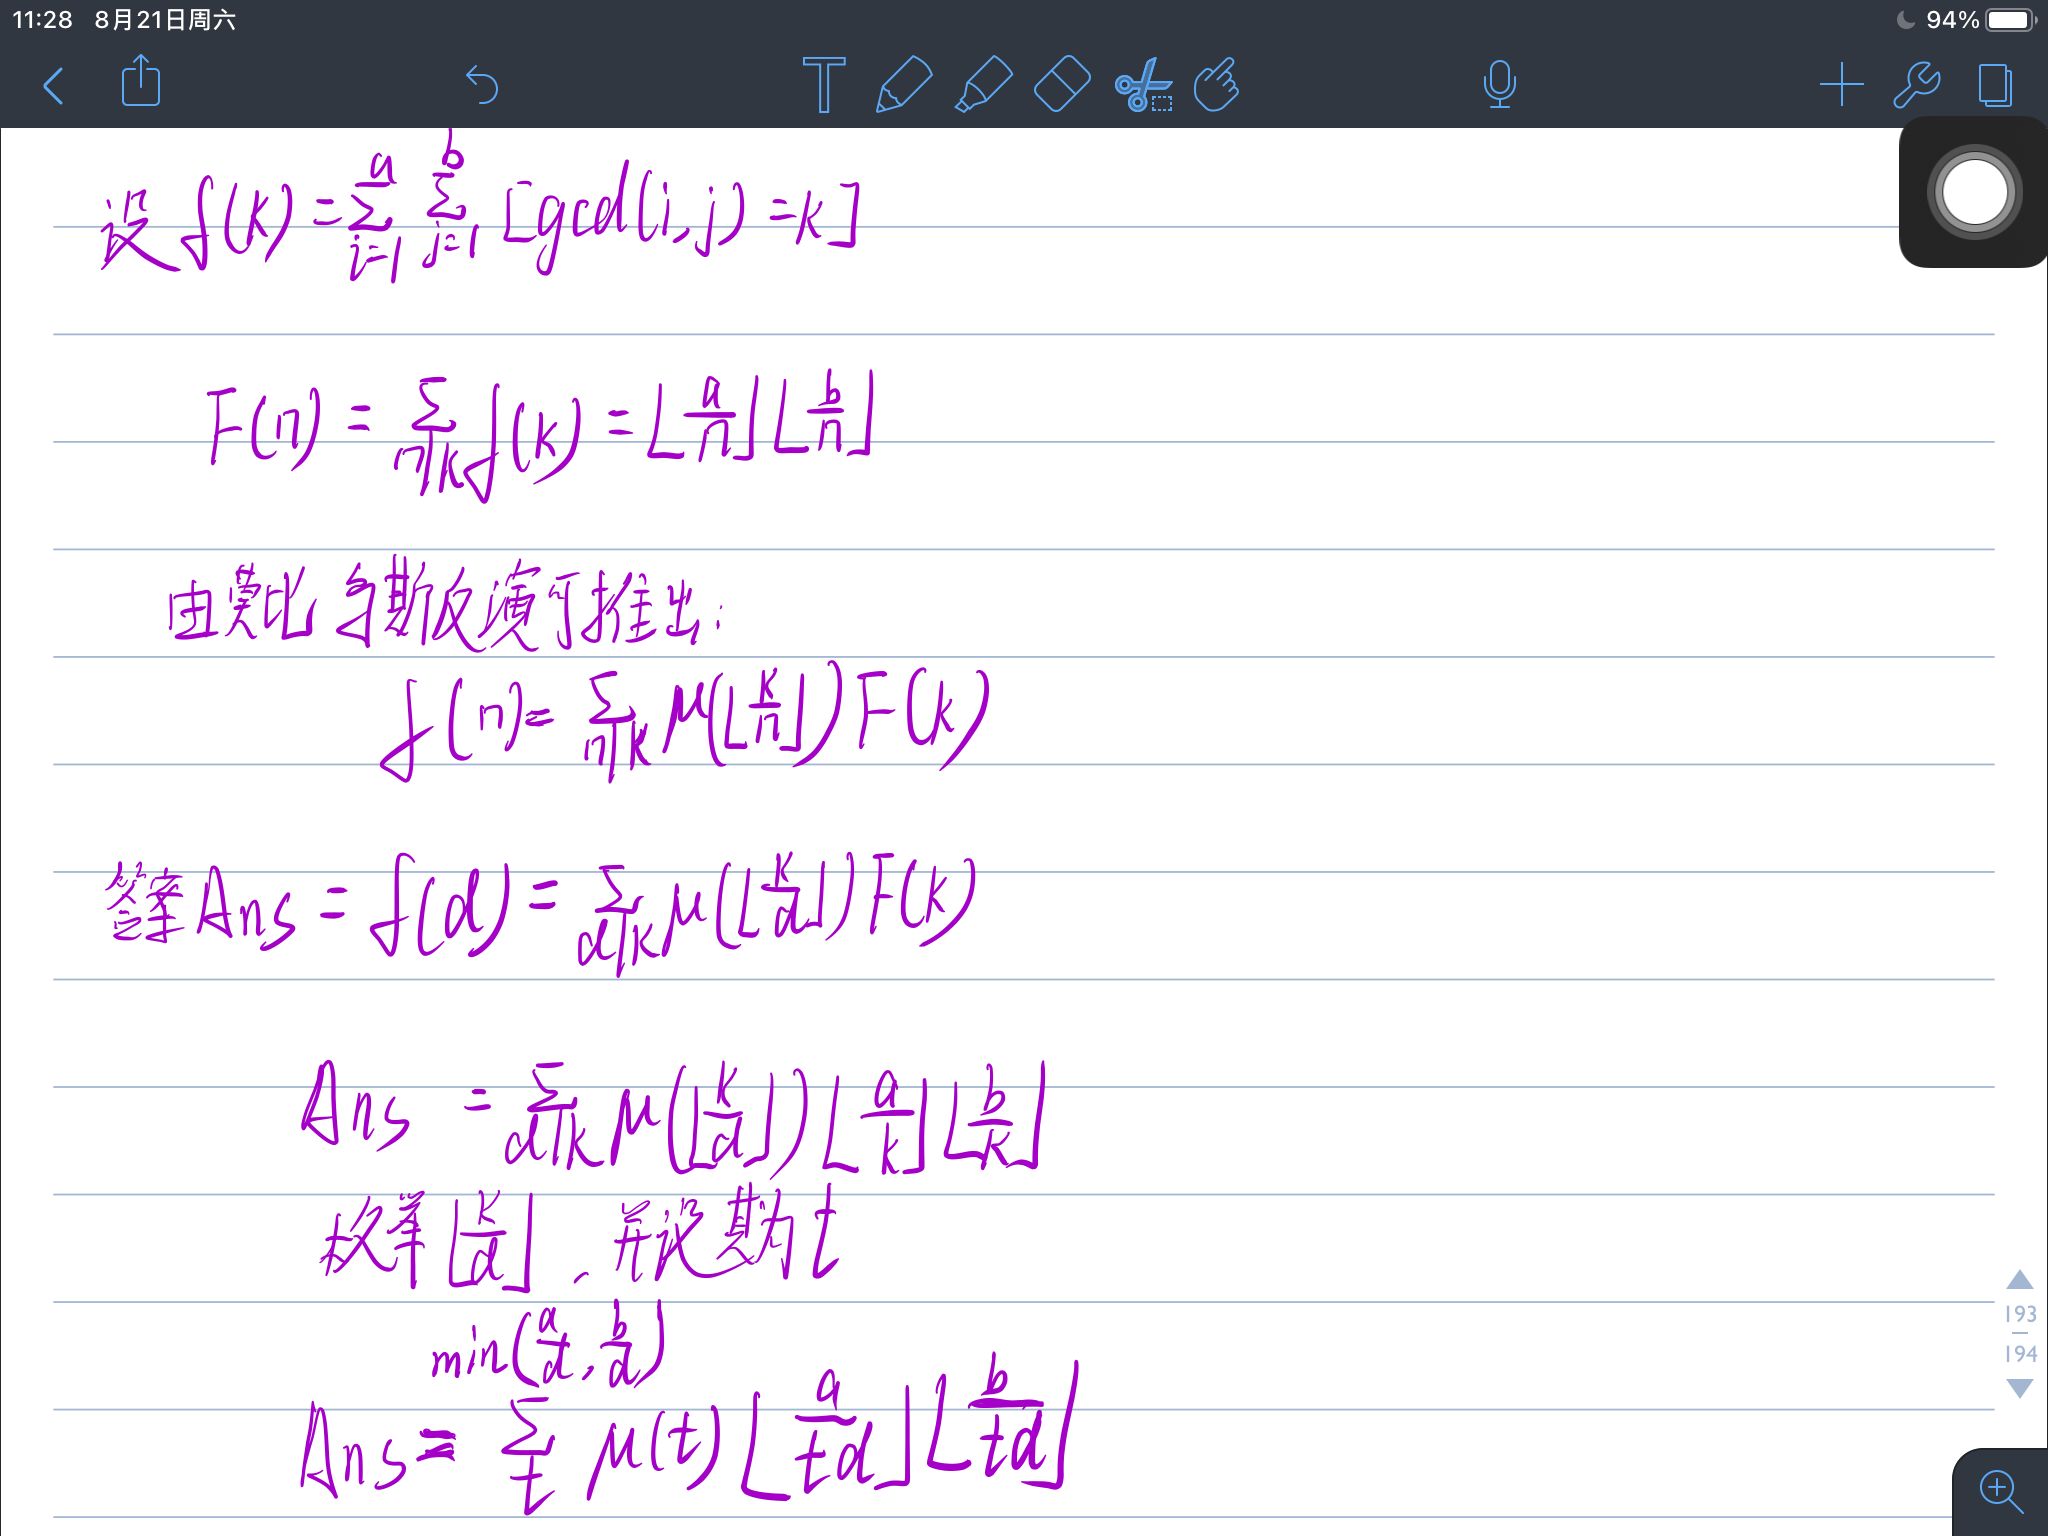 11:28 8月21日周六 94%
设 f(k) = \sum_{i=1}^{a} \sum_{j=1}^{b} [gcd(i,j) = k]
F(n) = \sum_{n|k} f(k) = ⌊\frac{a}{n}⌋⌊\frac{b}{n}⌋
由莫比乌斯反演可推出:
f(n) = \sum_{n|k} μ(⌊\frac{k}{n}⌋) F(k)
答案 Ans = f(d) = \sum_{d|k} μ(⌊\frac{k}{d}⌋) F(k)
Ans = \sum_{d|k} μ(⌊\frac{k}{d}⌋) ⌊\frac{a}{k}⌋ ⌊\frac{b}{k}⌋
枚举 ⌊\frac{k}{d}⌋, 并设其为 t
Ans = \sum_{t}^{min(\frac{a}{d}, \frac{b}{d})} μ(t) ⌊\frac{a}{td}⌋ ⌊\frac{b}{td}⌋
193
194